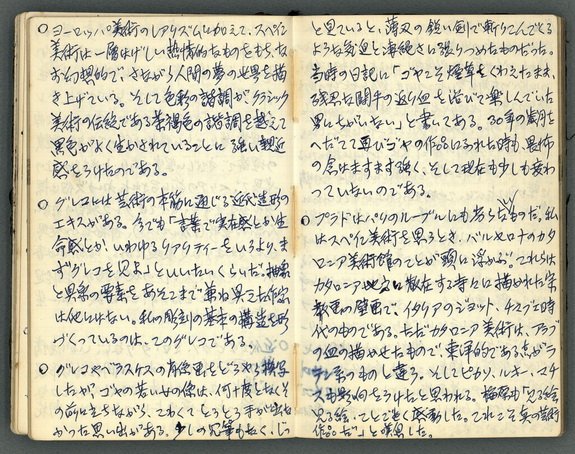 ○ ヨーロッパ美術のレアリズムに加えて、スペイン
美術は一層はげしい熱情的なものをもち、な
お幻想的で、さながら人間の夢の世界を描
き上げている。そして色彩の諧調が、クラシック
美術の伝統である茶褐色の諧調を越えて
黒色がよく生かされていることに強い親近
感をうけたのである。
○ グレコには芸術の本筋に通じる近代造形の
エキスがある。今でも「言葉で実在感とか生
命感とか、いわゆるリアリティーをいうより、ま
ずグレコを見よ」といいたいくらいだ。抽象
と具象の要素をあそこまで兼ね具えた作家
は他にはない。私の彫刻の基本の構造を形
づくっているのは、このグレコである。
○ グレコやベラスケスの肖像画をじろじろと模写
したが、ゴヤの若い女の像は、何十度となくそ
の前に立ちながら、こわくてとうとう手が出な
かった思い出がある。少しの冗筆もなく、じっ
と見ていると、薄刃の鋭い剣で斬りこんでくる
ような気迫と凄絶さに張りつめたものだった。
当時の日記に「ゴヤこそ煙草をくわえたまま、
残忍な闘牛の返り血を浴びて楽しんでいた
男にちがいない」と書いてある。30年の歳月を
へだてて再びゴヤの作品にふれた時も、畏怖
の念はますます強く、そして現在も少しも変わ
っていないのである。
○ プラドはパリのルーブルにも劣らないものだ。私
はスペイン美術を思うとき、バルセロナのカタ
ロニア美術館のことが頭に浮かぶ。これらは
カタロニア地方に散在する寺に描かれた宗
教画の壁画で、イタリアのジョット、チマブエ時
代のものである。ただカタロニア美術は、アラブ
の血の描かせたもので、東洋的である点がラ
テン系のものと違う。そしてピカソ、ルオー、マチ
スも影響をうけたと思われる。梅原も「見る絵
見る絵、ことごとく感動した。これこそ真の芸術
作品だ」と嘆息した。